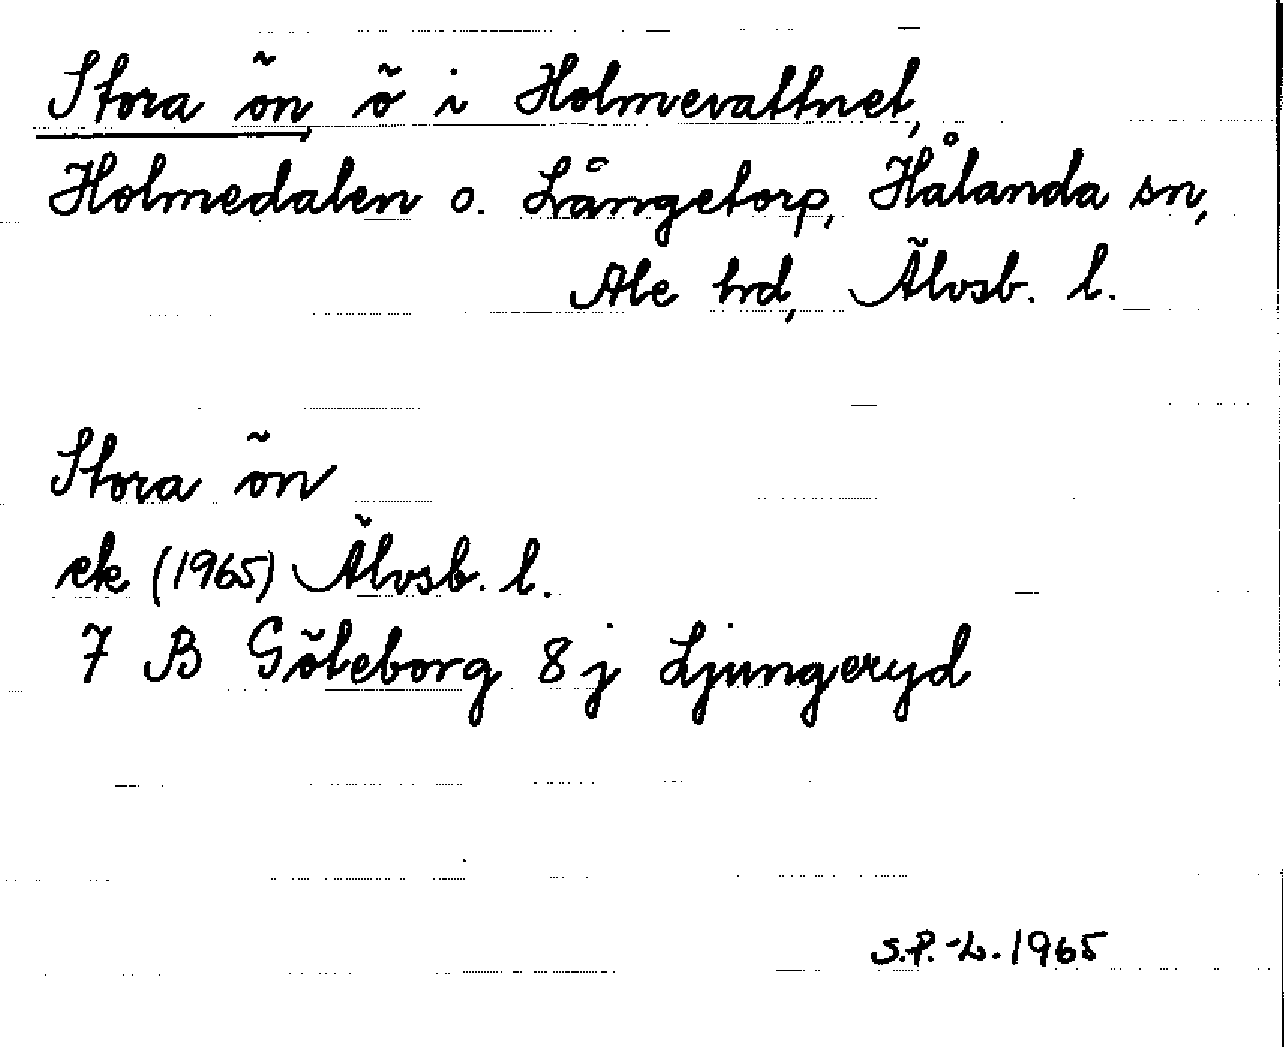 Stora ön, ö i Holmevattnet,
Holmedalen o. Långetorp, Hålanda sn,
Ale hrd, Älvsb. l.
Stora ön
ek (1965) Älvsb. l.
7 B Göteborg 8 j Ljungeryd
S.P.-L. 1965